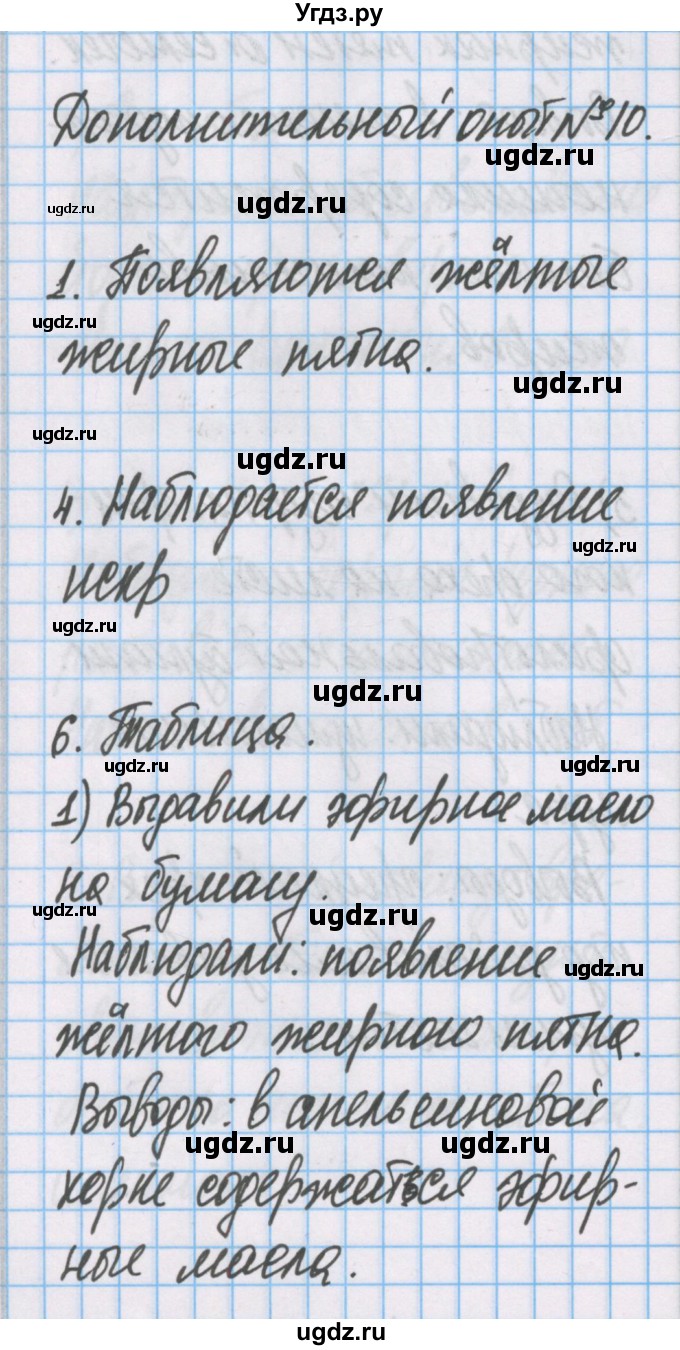 Угдз.ру
Дополнительный опыт №10.
ugdz.ru
ugdz.ru ugdz.ru
1. Появляются жёлтые
ugdz.ru
жирные пятна.
ugdz.ru
ugdz.ru ugdz.ru
4. Наблюдается появление
ugdz.ru
искр
ugdz.ru
ugdz.ru
6. Таблица.
ugdz.ru ugdz.ru
1) Выдавили эфирное масло
на бумагу.
ugdz.ru ugdz.ru
Наблюдали: появление
ugdz.ru
жёлтого жирного пятна.
Выводы: в апельсиновой
ugdz.ru ugdz.ru
корке содержаться эфир-
ные масла.
ugdz.ru